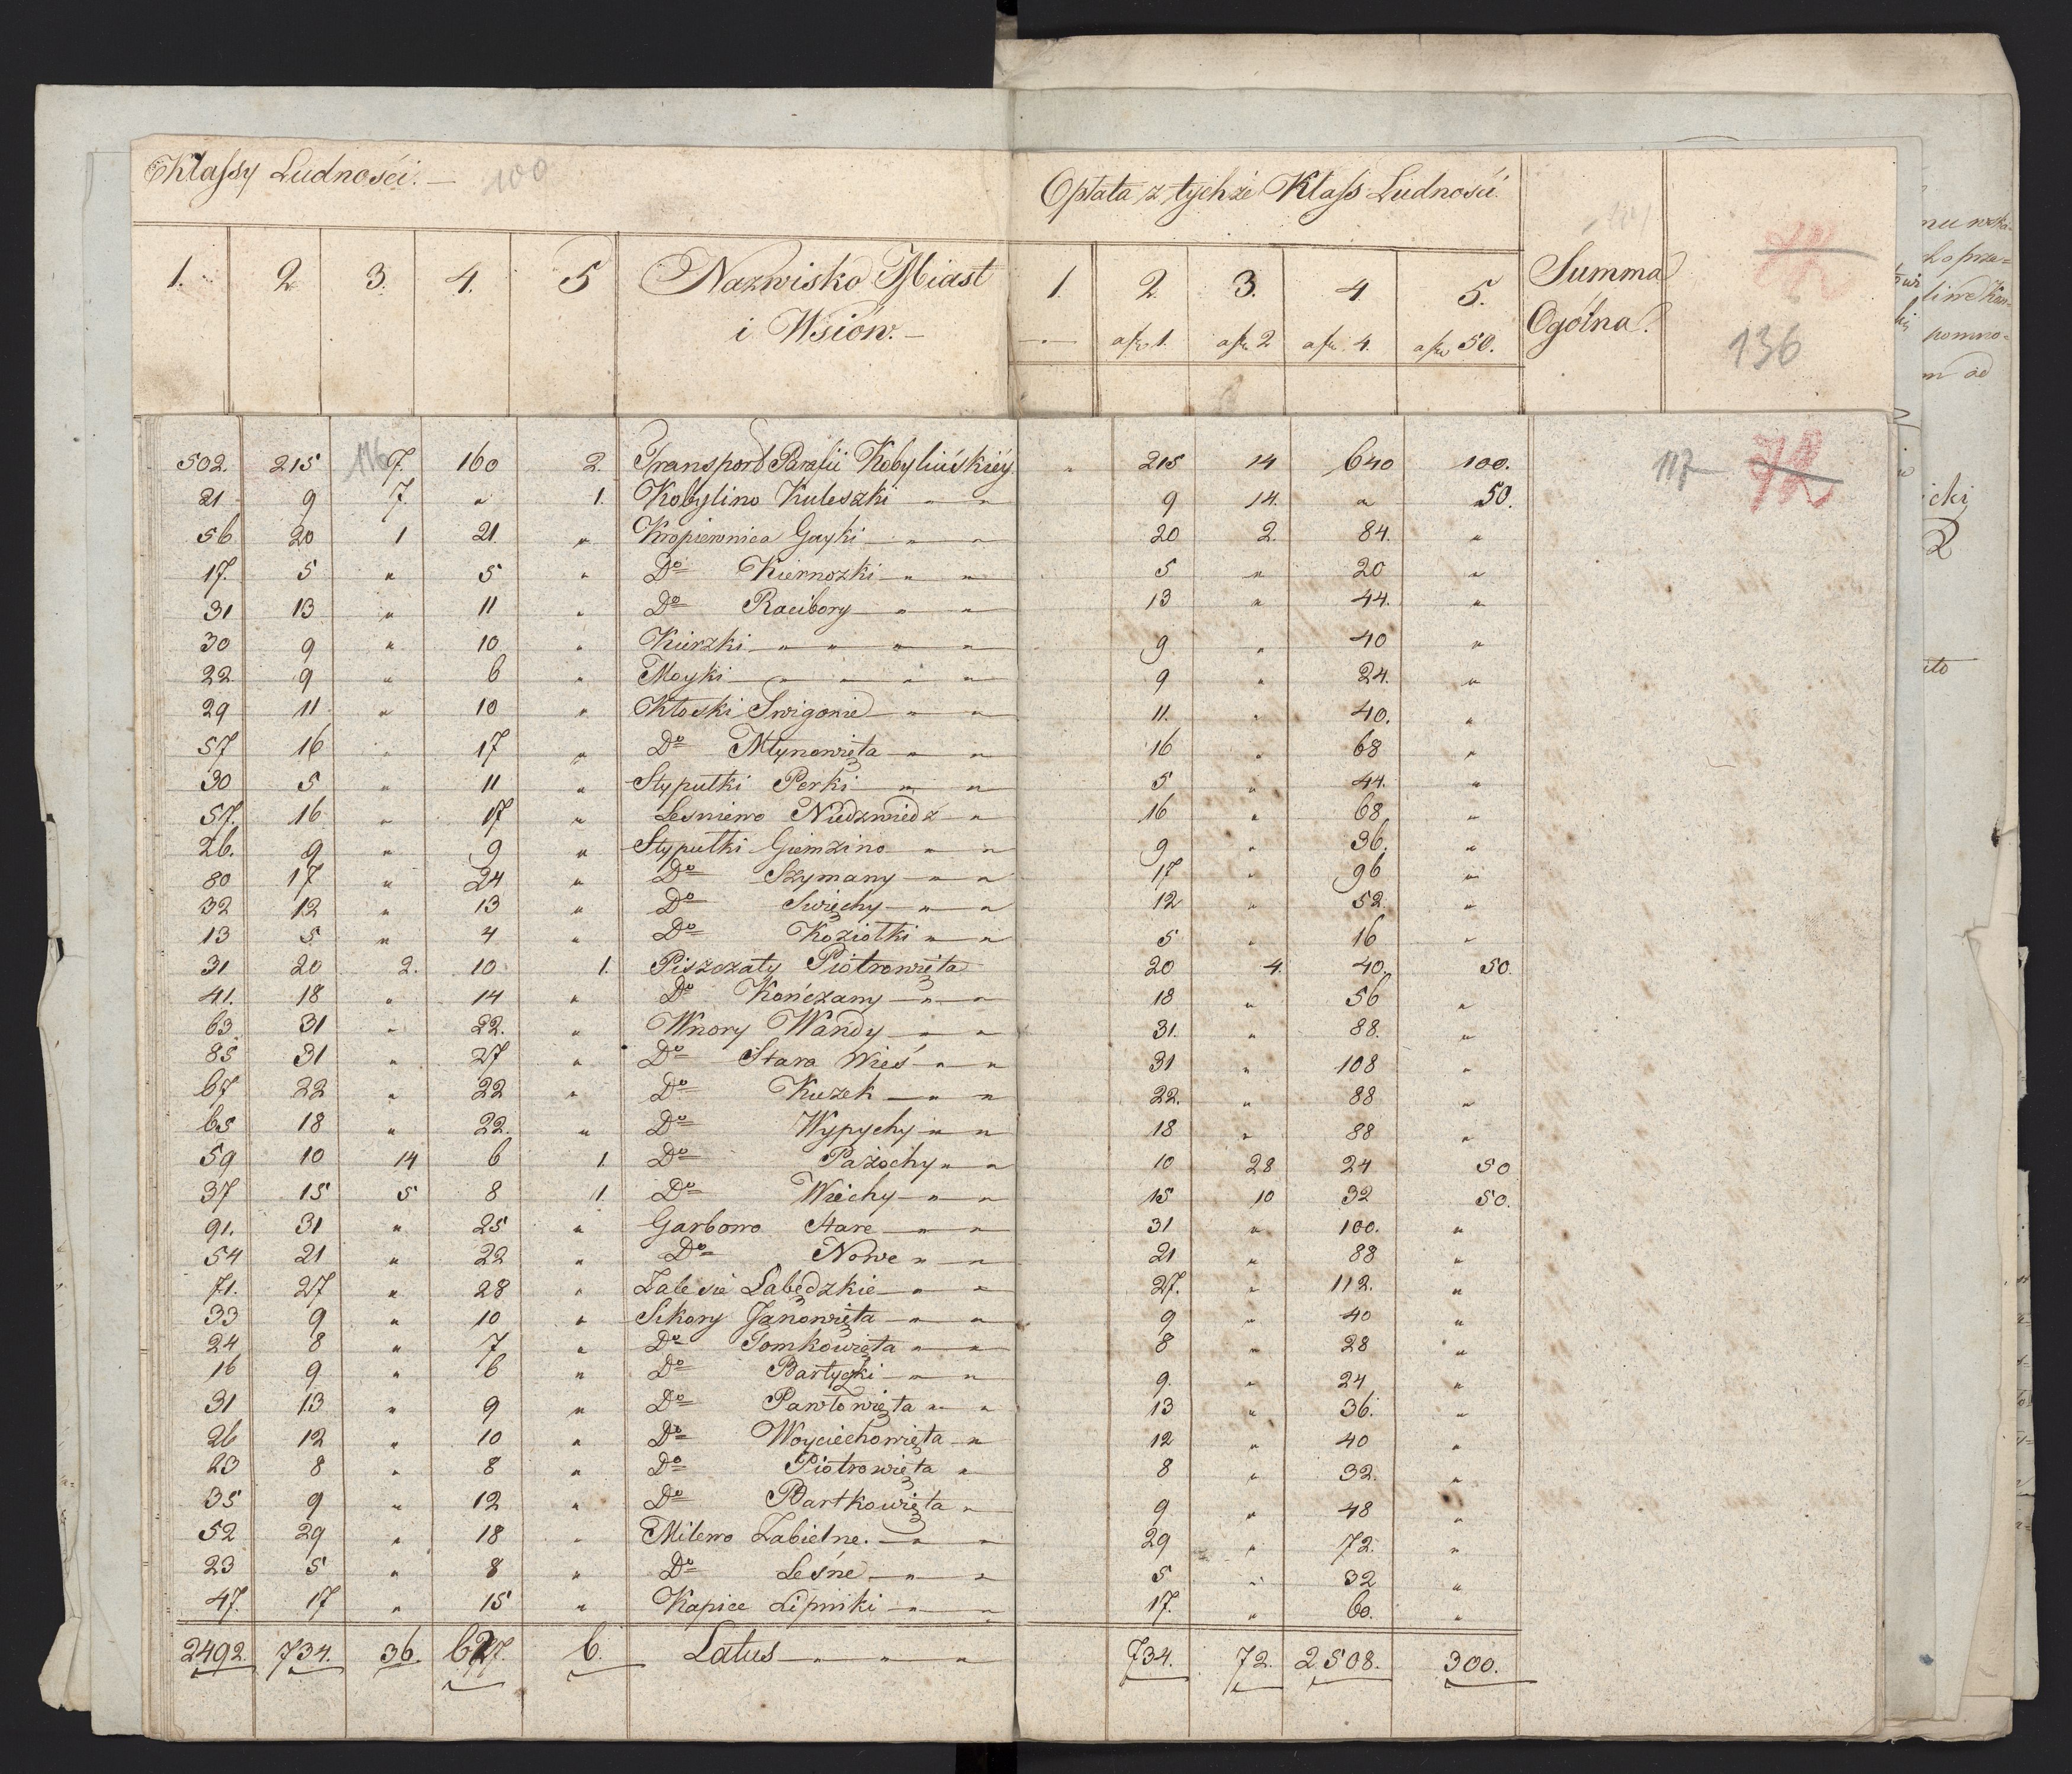 Klassy Ludności. — 100
Opłata z tychże Klass Ludności.
1. 2 3. 4. 5 Nazwisko Miast i Wsiów. — 1. 2. 3. 4 5. Summa Ogólna.
1. 2 4. 50.
136
502. 215 7. 160 2. Transport Parafii Kobylińskiéy " 215 14 640 100.
116 117
21 9 7. " 1. Kobylino Kuleszki " " 9 14. " 50.
56 20 1 21. " Kropiewnica Gayki " " 20 2. 84. "
17. 5 " 5 " Do Kiernozki " " 5 " 20 "
31 13 " 11 " Do Racibory " " 13 " 44. "
30 9 " 10 " Kurzki " " " " 9 " 40 "
22 9 " 6 " Moyki " " " " 9 " 24. "
29 11 " 10 " Kłoski Swigonie " " 11. " 40. "
57 16 " 17 " Do Młynowięta " " 16 " 68 "
30 5 " 11 " Stypułki Perki " " 5 " 44. "
57. 16 " 17 " Lesniewo Niedzwiedz " 16 " 68 "
26. 9 " 9 " Stypułki Giemzino " " 9 " 36. "
80 17 " 24 " Do Szymany " " 17 " 96 "
32 12 " 13 " Do Swięchy " " 12 " 52. "
13 5 " 4 " Do Koziołki " " 5 " 16 "
31 20 2. 10 1. Piszczaty Piotrowięta 20 4. 40. 50.
41. 18 " 14 " Do Kończany " " 18 " 56 "
63 31 " 22. " Wnory Wandy " " 31. " 88. "
85 31 " 27 " Do Stara Wieś " " 31 " 108 "
67 22 " 22 " Do Kużek " " 22. " 88 "
65 18 " 22. " Do Wypychy " " 18 " 88 "
59 10 14 6 1. Do Pażochy " " 10 28 24 50
37 15 5 8 1. Do Wiechy " " 15 10 32 50.
91. 31 " 25 " Garbowo Stare " " 31 " 100. "
54 21 " 22 " Do Nowe " " 21 " 88 "
71. 27 " 28 " Zalesie Łabędzkie " " 27. " 112. "
33 9 " 10 " Sikory Janowięta " " 9 " 40 "
24 8 " 7 " Do Tomkowięta " " 8 " 28 "
16 9 " 6 " Do Bartyczki " " 9. " 24 "
31 13 " 9 " Do Pawłowięta " " 13 " 36. "
26 12 " 10 " Do Woyciechowięta " 12 " 40 "
23 8 " 8 " Do Piotrowięta " 8 " 32. "
35 9 " 12 " Do Bartkowięta " 9 " 48 "
52 29 " 18 " Milewo Zabielne. " " 29 " 72. "
23 5 " 8 " Do Leśne " " 5 " 32 "
47. 17 " 15 " Kapice Lipniki " " 17. " 60. "
2492. 734. 36. 627. 6. Latus " " " 734. 72. 2508. 300.